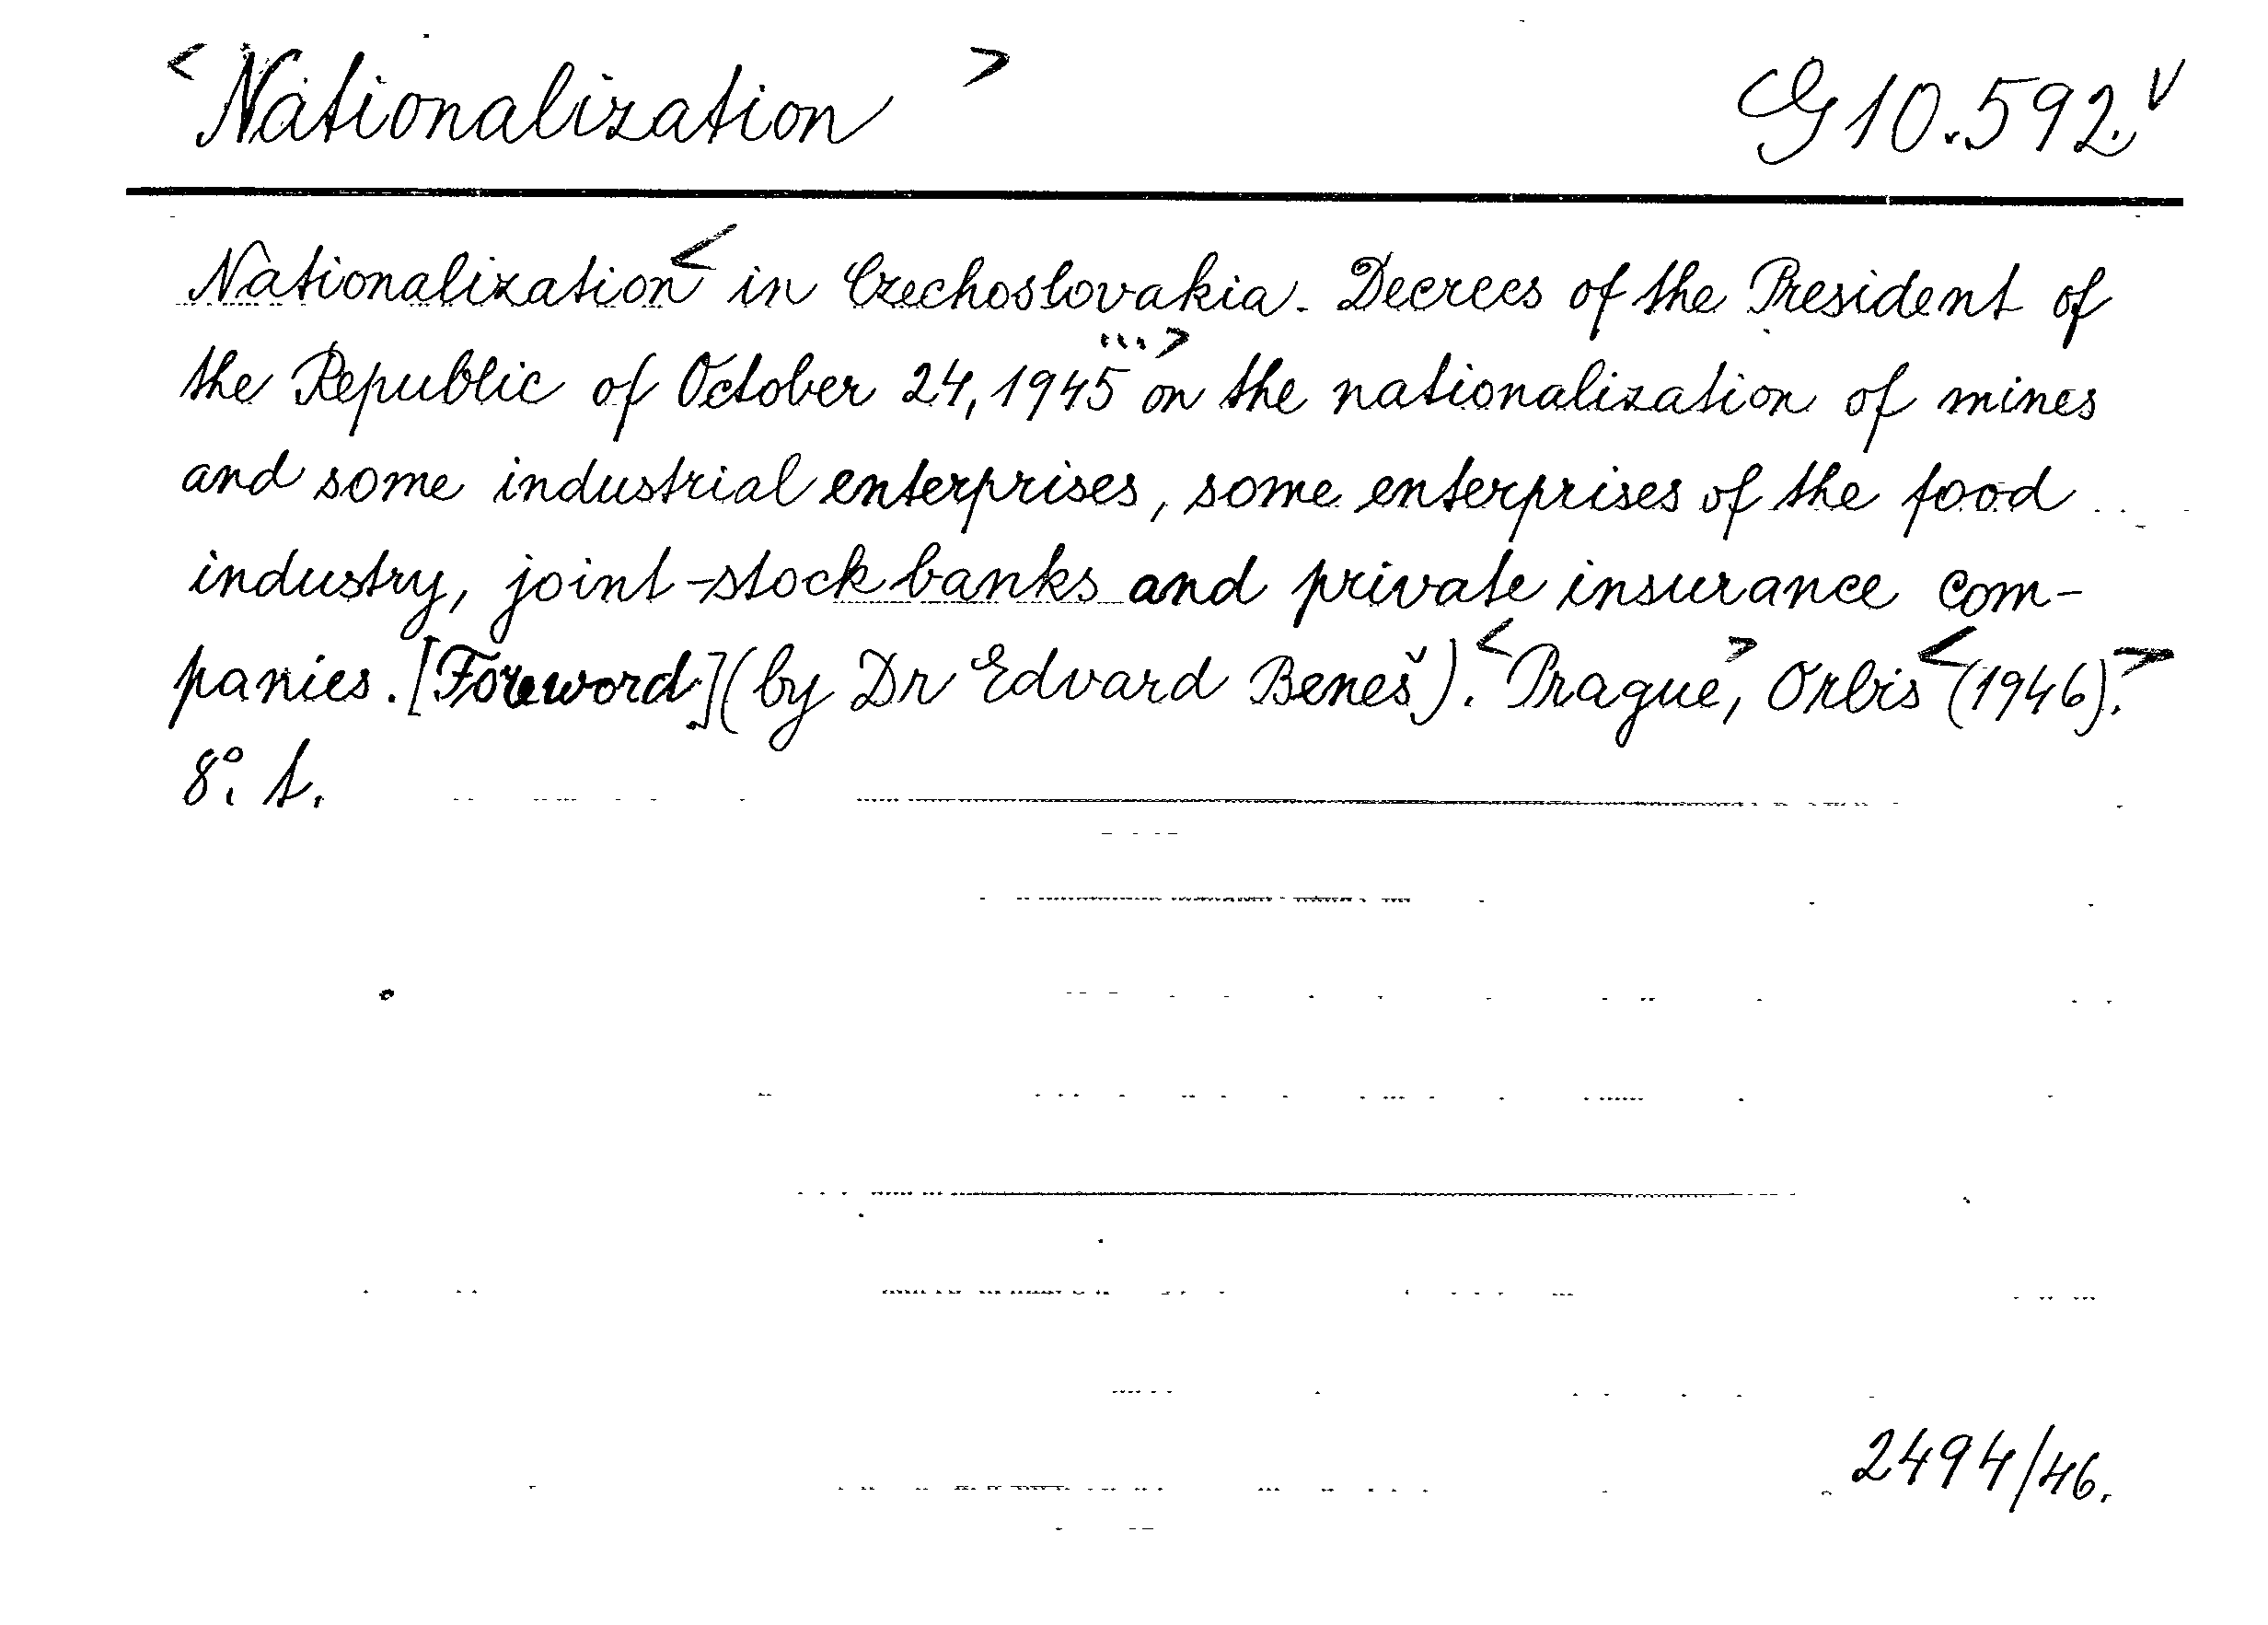 < Nationalization > G 10.592. v
Nationalization < in Czechoslovakia. Decrees of the President of
the Republic of October 24, 1945 ...> on the nationalization of mines
and some industrial enterprises, some enterprises of the food
industry, joint-stock banks and private insurance com-
panies. [Foreword] (by Dr Edvard Beneš). < Prague, > Orbis < (1946). >
8°. t.
2494/46.